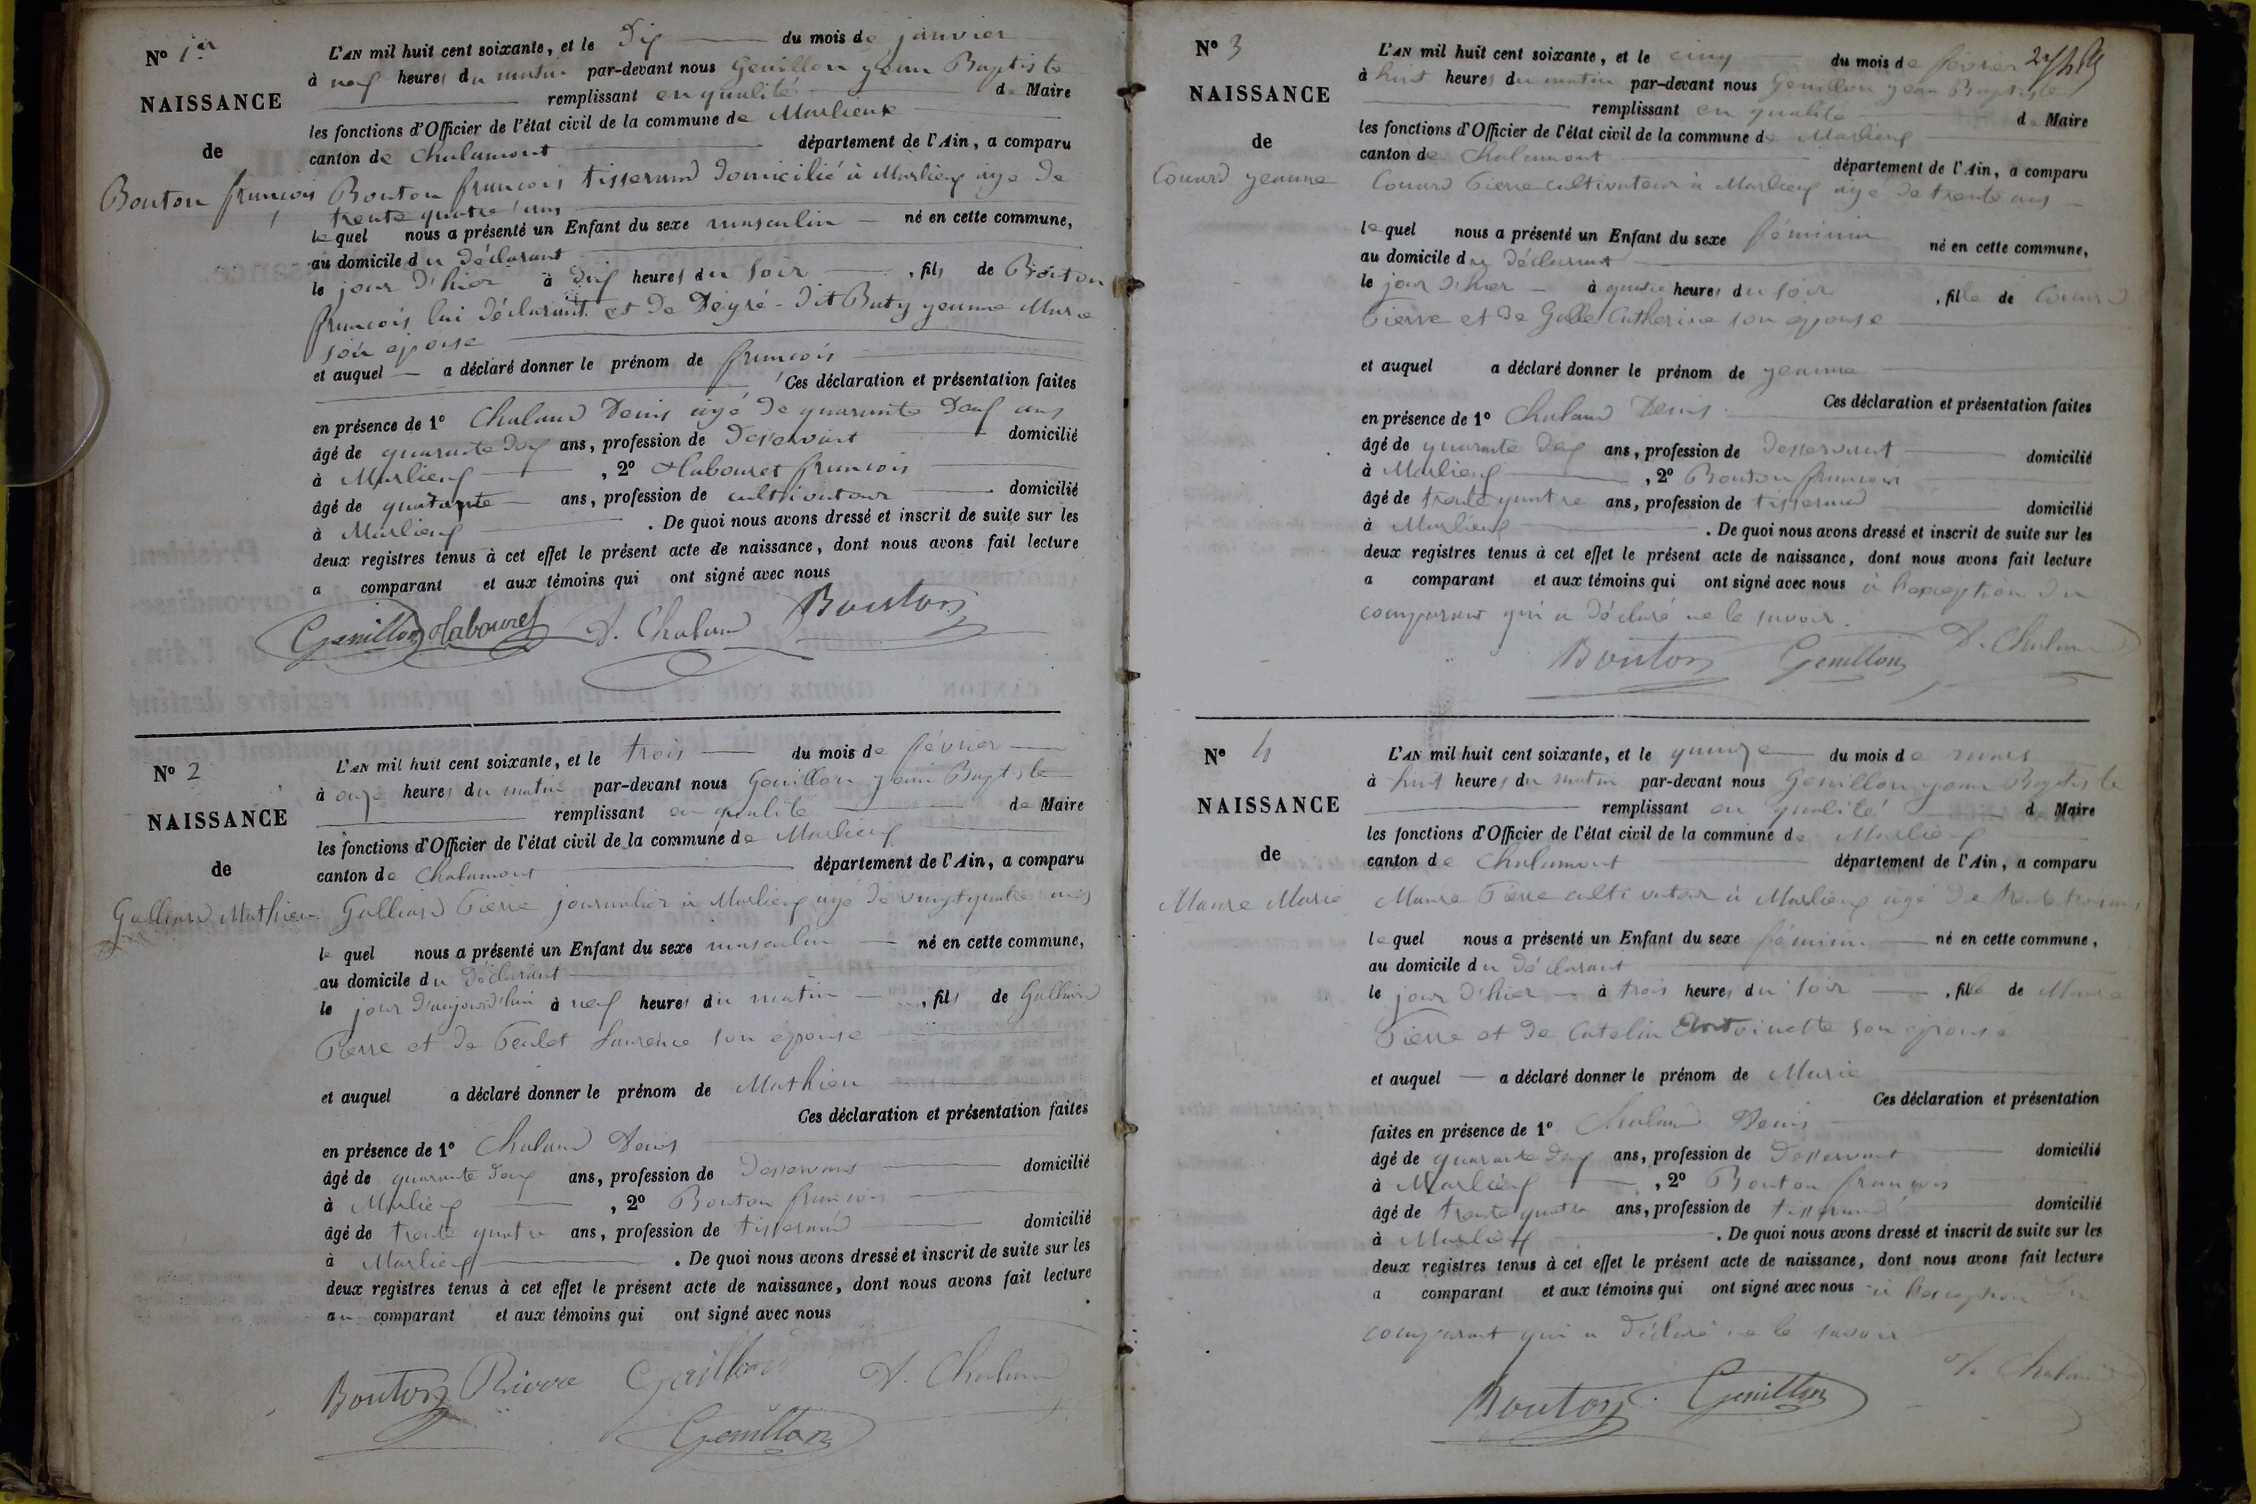 N° 1er
NAISSANCE
de
Bouton françois
L'AN mil huit cent soixante, et le Dix du mois de janvier
à neuf heures du matin par-devant nous Genillon jean Baptiste
remplissant en qualité de Maire
les fonctions d'Officier de l'état civil de la commune de Marlieux
canton de Chalamont département de l'Ain, a comparu
Bouton francois tisserand domicilié à Marlieux age de
trente quatre ans
lequel nous a présenté un Enfant du sexe masculin né en cette commune,
au domicile du déclarant
le jour d'hier à dix heures du soir, fils de Bouton
francois lui déclarant et de Deyré - dit Buty jeanne Marie
son epouse
et auquel a déclaré donner le prénom de francois
Ces déclaration et présentation faites
en présence de 1° Chaland Denis agé de quarante Deux ans
âgé de quarante deux ans, profession de Desservant domicilié
à Marlieux, 2° Labouret francois
âgé de quarante ans, profession de cultivateur domicilié
à Marlieux. De quoi nous avons dressé et inscrit de suite sur les
deux registres tenus à cet effet le présent acte de naissance, dont nous avons fait lecture
a comparant et aux témoins qui ont signé avec nous
Genillon Labouret D. Chaland Bouton
N° 2
NAISSANCE
de
Galliard Mathieu
L'AN mil huit cent soixante, et le trois du mois de février
à onze heures du matin par-devant nous Genillon jean Baptiste
remplissant en qualité de Maire
les fonctions d'Officier de l'état civil de la commune de Marlieux
canton de Chalamont département de l'Ain, a comparu
Galliard Pierre journalier à Marlieux agé de vingt quatre ans
le quel nous a présenté un Enfant du sexe masculin né en cette commune,
au domicile du déclarant
le jour d'aujourd'hui à neuf heures du matin, fils de Galliard
Pierre et de Feulet Laurence son epouse
et auquel a déclaré donner le prénom de Mathieu
Ces déclaration et présentation faites
en présence de 1° Chaland Denis
âgé de quarante deux ans, profession de Desservant domicilié
à Marlieux, 2° Bouton francois
âgé de trente quatre ans, profession de tisserand domicilié
à Marlieux. De quoi nous avons dressé et inscrit de suite sur les
deux registres tenus à cet effet le présent acte de naissance, dont nous avons fait lecture
au comparant et aux témoins qui ont signé avec nous
Bouton Pierre Gaillard D. Chaland
Genillon
N° 3
NAISSANCE
de
Couard jeanne
L'AN mil huit cent soixante, et le cinq du mois de février
à huit heures du matin par-devant nous Genillon jean Baptiste
remplissant en qualité d Maire
les fonctions d'Officier de l'état civil de la commune de Marlieux
canton de Chalamont département de l'Ain, a comparu
Couard Pierre cultivateur à Marlieux agé de trente ans
lequel nous a présenté un Enfant du sexe féminin né en cette commune,
au domicile du déclarant
le jour d'hier à quatre heures du soir, fille de Couard
Pierre et de Galle Catherine son epouse
et auquel a déclaré donner le prénom de jeanne
Ces déclaration et présentation faites
en présence de 1° Chaland Denis
âgé de quarante deux ans, profession de Desservant domicilié
à Marlieux, 2° Bouton francois
âgé de trente quatre ans, profession de tisserand domicilié
à Marlieux. De quoi nous avons dressé et inscrit de suite sur les
deux registres tenus à cet effet le présent acte de naissance, dont nous avons fait lecture
a comparant et aux témoins qui ont signé avec nous à l'exception du
comparant qui a déclaré ne le savoir.
Bouton Genillon D. Chaland
N° 4
NAISSANCE
de
Maure Marie
L'AN mil huit cent soixante, et le quinze du mois de mars
à huit heures du matin par-devant nous Genillon jean Baptiste
remplissant en qualité d Maire
les fonctions d'Officier de l'état civil de la commune de Marlieux
canton de Chalamont département de l'Ain, a comparu
Maure Pierre cultivateur à Marlieux agé de trente trois ans
lequel nous a présenté un Enfant du sexe féminin né en cette commune,
au domicile du déclarant
le jour d'hier à trois heures du soir, fille de Maure
Pierre et de Catelin Antoinette son epouse
et auquel a déclaré donner le prénom de Marie
Ces déclaration et présentation
faites en présence de 1° Chaland Denis
âgé de quarante deux ans, profession de Desservant domicilié
à Marlieux, 2° Bouton françois
âgé de trente quatre ans, profession de tisserand domicilié
à Marlieux. De quoi nous avons dressé et inscrit de suite sur les
deux registres tenus à cet effet le présent acte de naissance, dont nous avons fait lecture
a comparant et aux témoins qui ont signé avec nous à l'exception du
comparant qui a déclaré ne le savoir
Bouton Genillon D. Chaland